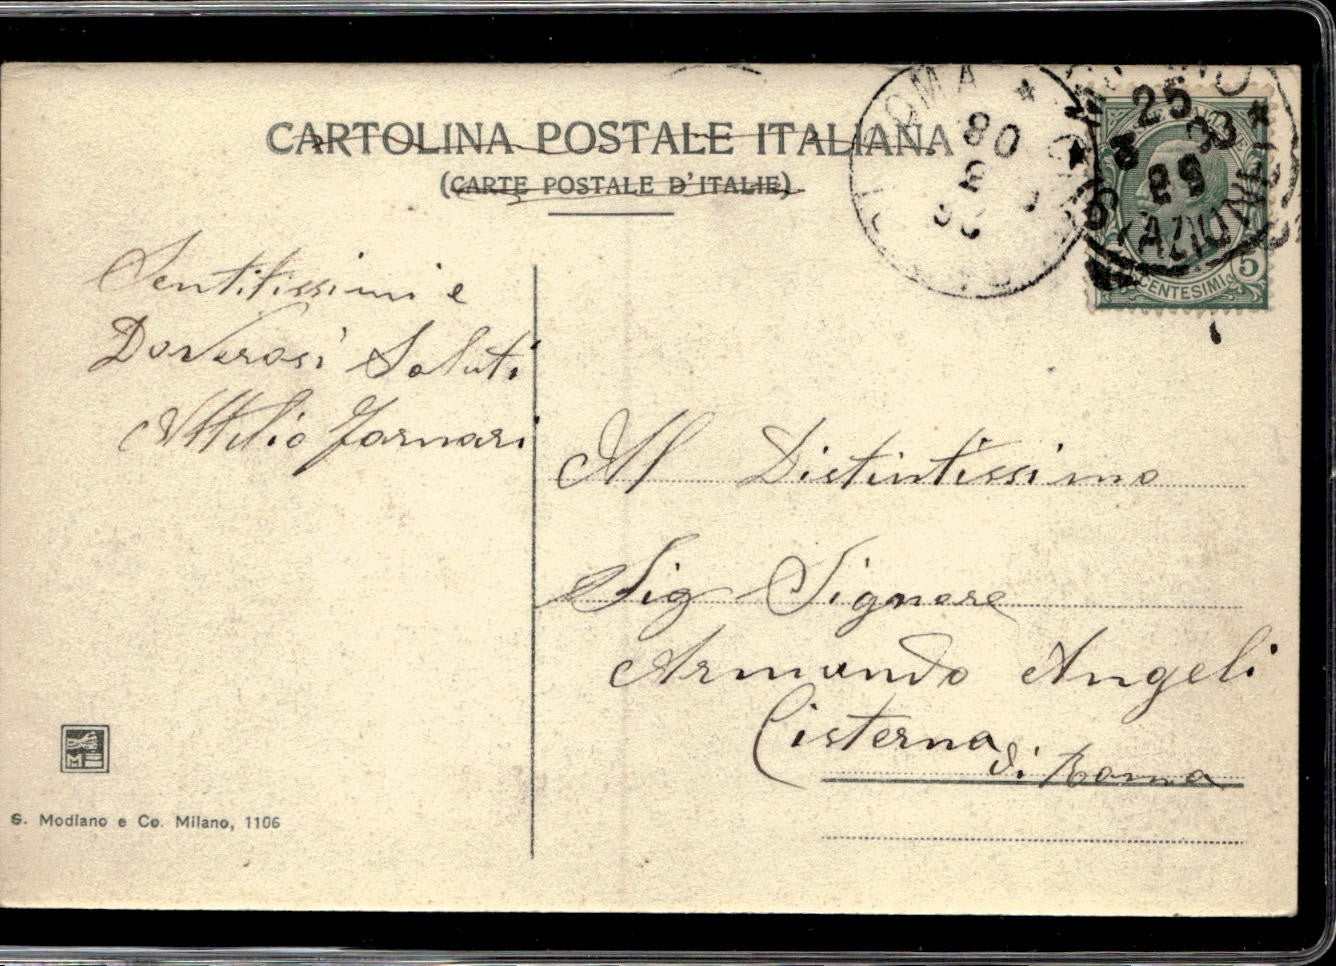 CARTOLINA POSTALE ITALIANA
(CARTE POSTALE D'ITALIE)
ROMA
08
25
5
CENTESIMI
Sentitissimi e
Doverosi Saluti
Attilio Fornari
All Distintissimo
Sig Signore
Armando Angeli
Cisterna
di Roma
M
S. Modiano e Co. Milano, 1106